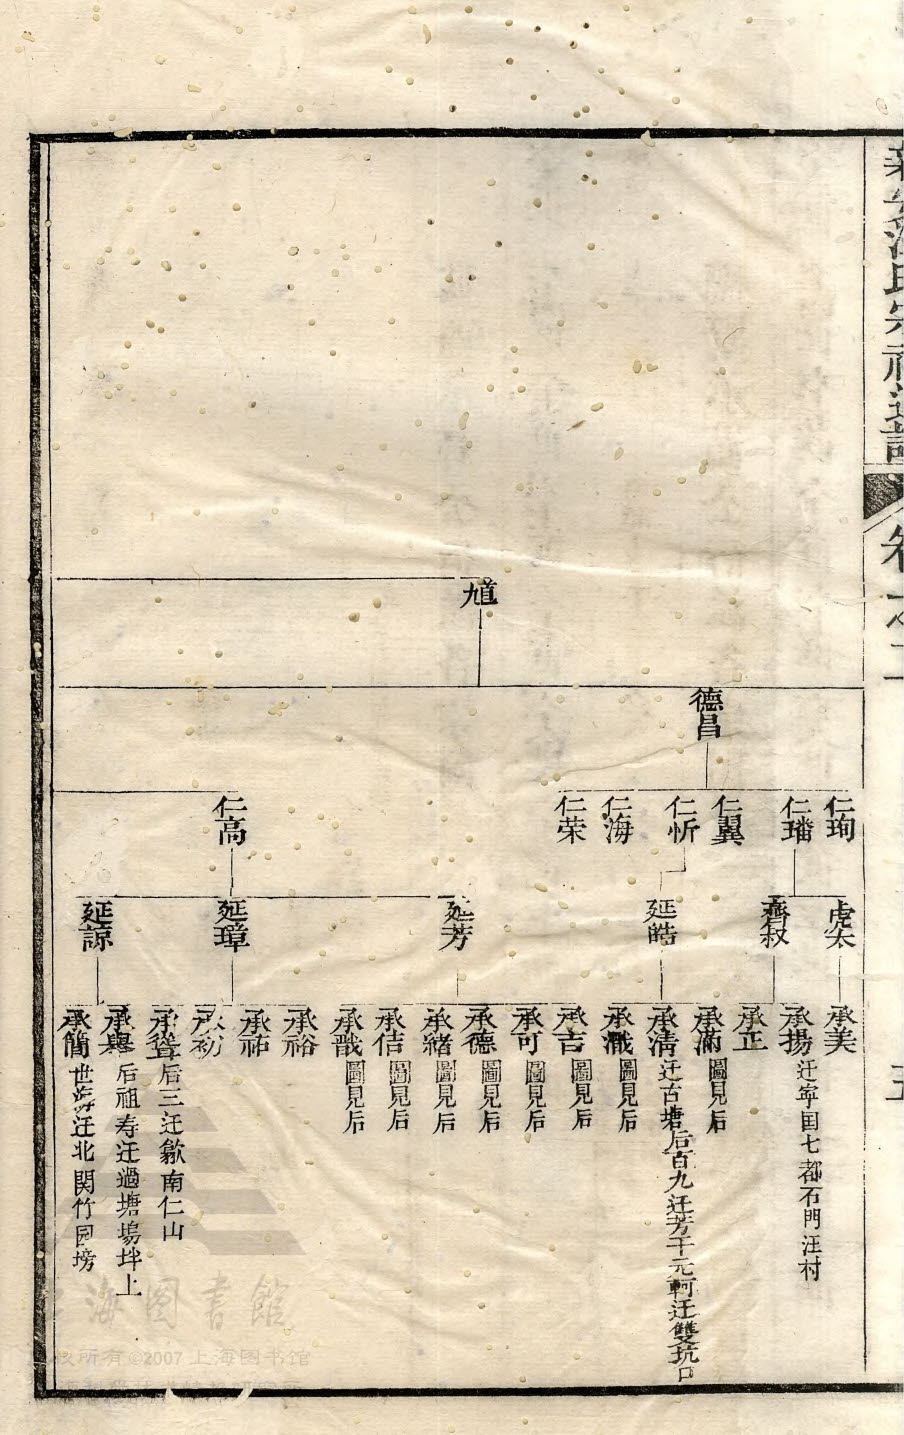 新安汪氏宗祠通譜
卷之二
五
馗
德昌
仁珣
仁璠
仁翼
仁忻
仁海
仁荣
仁高
虎太
齊叙
延皓
延芳
延璋
延諒
承美
承揚 迁寧囯七都石門汪村
承正
承滿 圖見后
承清 迁古塘后百九迁芳干元軻迁雙坑口
承瀐 圖見后
承吉 圖見后
承可 圖見后
承德 圖見后
承緒 圖見后
承佶 圖見后
承戬 圖見后
承裕
承祐
承初
承聳 后三迁歙南仁山
承舉 后祖寿迁過塘塢坢上
承簡 世 迁北関竹园塝
上海图書館
版权所有©2007 上海图书馆